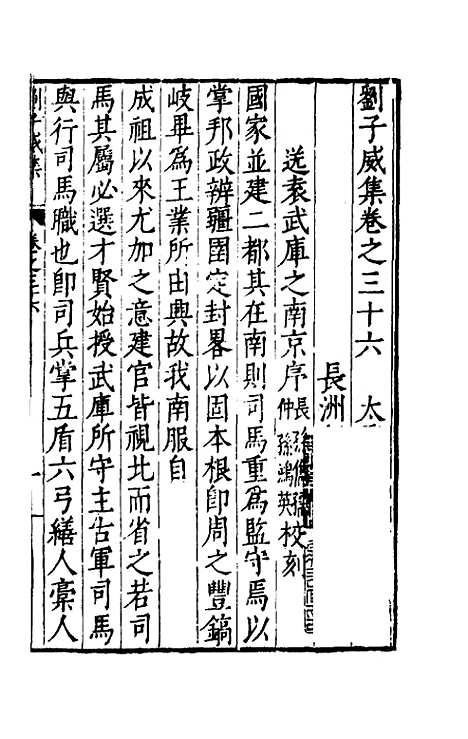 劉子威集卷之三十六 太
長洲
送袁武庫之南京序 長孫
仲孫鴻英校刻
國家並建二都其在南則司馬重為監守焉以
掌邦政辨疆圉定封畧以固本根卽周之豐鎬
岐畢為王業所由興故我南服自
成祖以來尤加之意建官皆視北而省之若司
馬其屬必選才賢始授武庫所守主古軍司馬
與行司馬職也卽司兵掌五盾六弓繕人槀人
劉子威集 卷之三十六 一